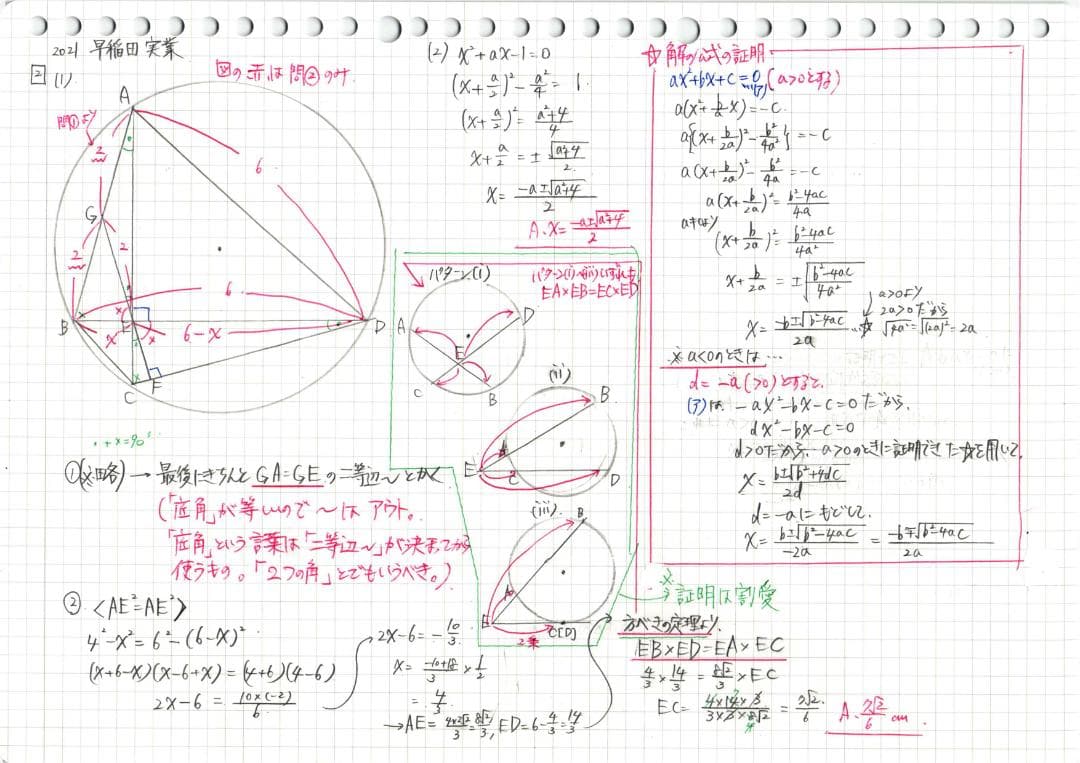 2021 早稲田実業
2 (1)
図の赤は問②のみ。
問①より
A
2
6
G
2
2
6
B
x
E
6-x
D
F
C
・+×=90°
①(略) → 最後にきちんとGA=GEの二等辺〜とかく
(「底角」が等しいので〜はアウト。
「底角」という言葉は「二等辺〜」が決まってから
使うもの。「2つの角」とでもいうべき。)
② <AE²=AE²>
4²-x²=6²-(6-x)²
(x+6-x)(x-6+x)=(4+6)(4-6)
2x-6=10×(-2)/6
2x-6=-10/3
x=(-10+18)/3×1/2
=4/3
→AE=4×2√2/3=8√2/3, ED=6-4/3=14/3
(2) x²+ax-1=0
(x+a/2)²-a²/4=1
(x+a/2)²=(a²+4)/4
x+a/2=±√(a²+4)/2
x=(-a±√(a²+4))/2
A. x=(-a±√(a²+4))/2
パターン(i)
パターン(i)〜(iii)いずれも
EA×EB=EC×ED
A
D
E
C
B
(ii)
B
A
E
C
D
(iii)
B
A
E
C(D)
2乗
※証明は割愛
方べきの定理より、
EB×ED=EA×EC
4/3×14/3=8√2/3×EC
EC=4×14×3/3×3×8√2=7√2/6
A. 7√2/6 cm
☆解の公式の証明
ax²+bx+c=0…(ア)(a>0とする)
a(x²+b/a x)=-c
a{(x+b/2a)²-b²/4a²}=-c
a(x+b/2a)²-b²/4a=-c
a(x+b/2a)²=(b²-4ac)/4a
a≠0より
(x+b/2a)²=(b²-4ac)/4a²
x+b/2a=±√((b²-4ac)/4a²)
a>0より
2a>0だから
√4a²=√(2a)²=2a
x=(-b±√(b²-4ac))/2a …☆
※a<0のときは…
d=-a(>0)とすると、
(ア)は、-ax²-bx-c=0だから、
dx²-bx-c=0
d>0だから、a>0のときに証明できた☆を用いて、
x=(b±√(b²+4dc))/2d
d=-aにもどして、
x=(b±√(b²-4ac))/-2a=(-b∓√(b²-4ac))/2a